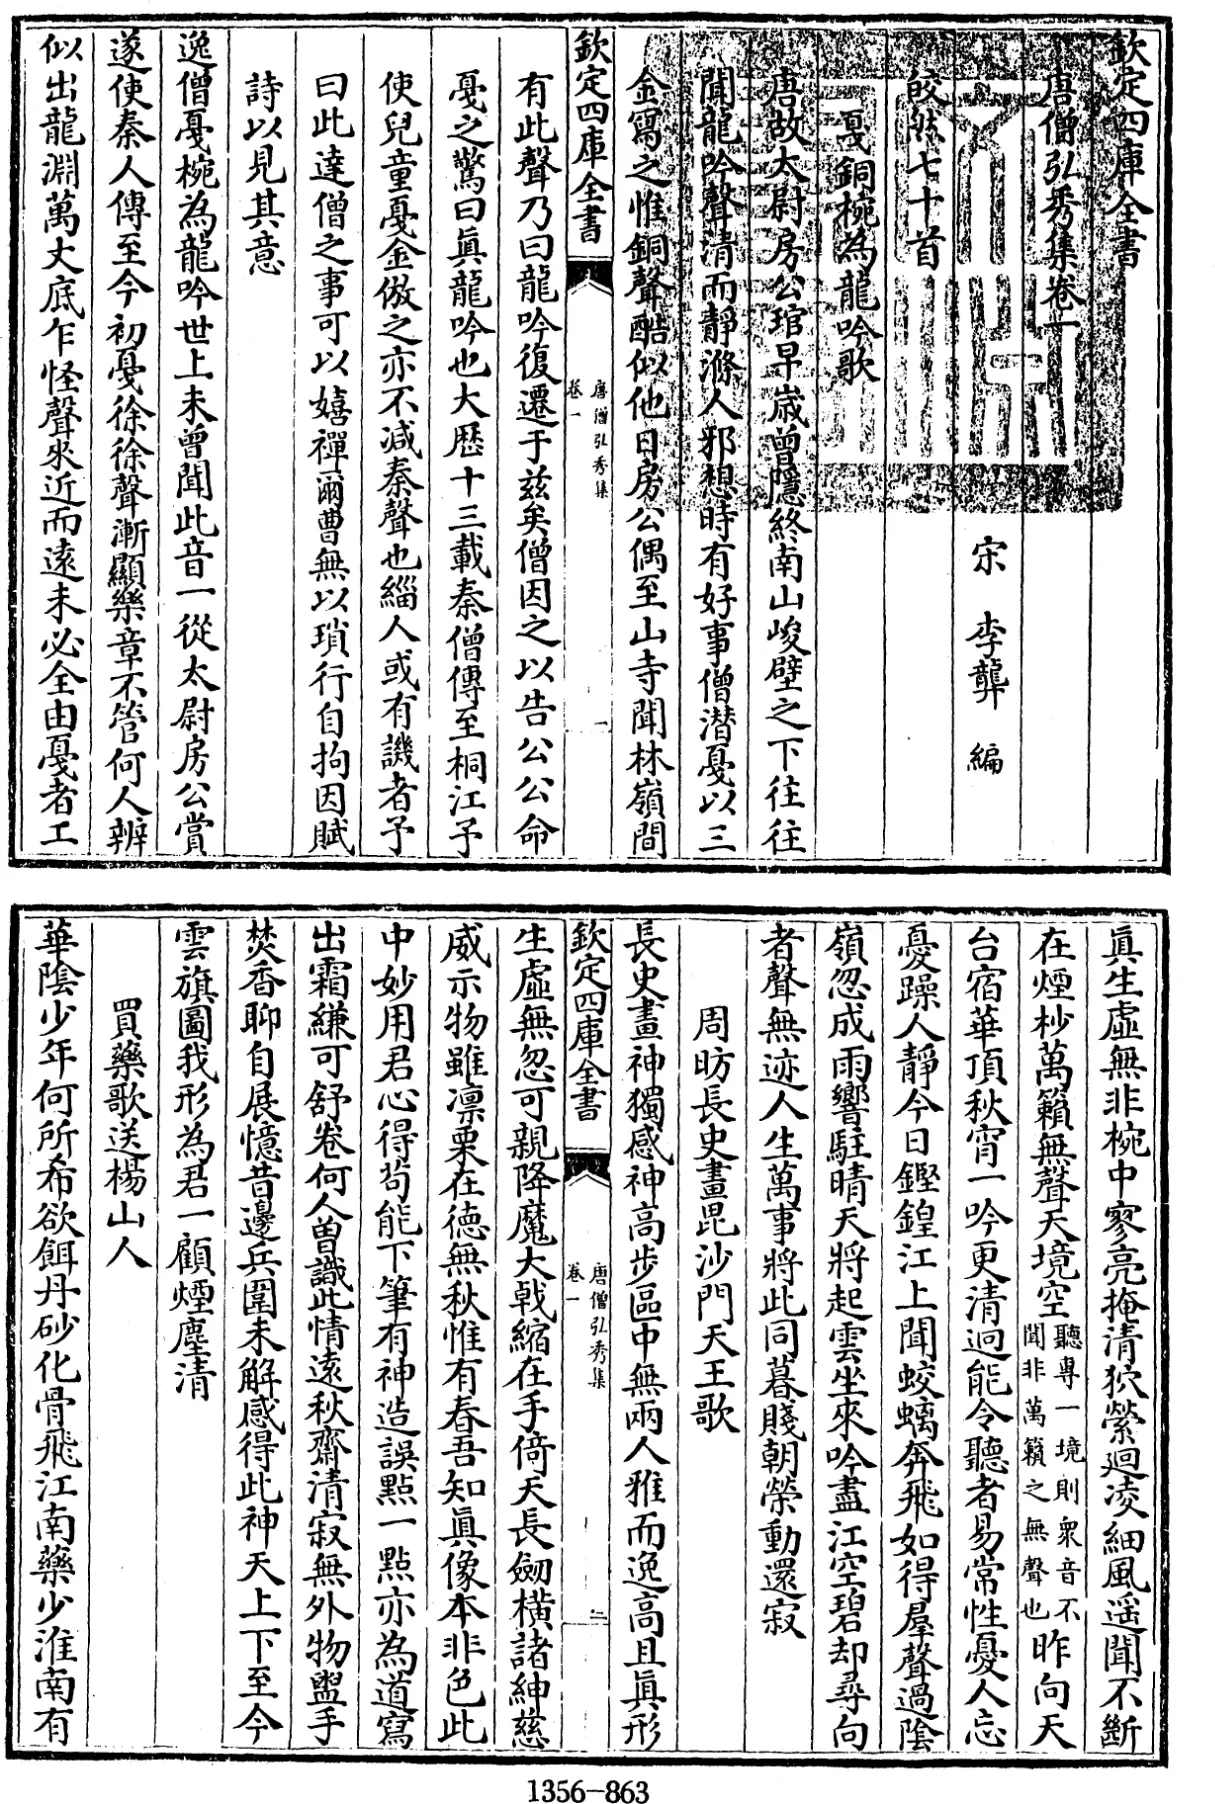 欽定四庫全書
唐僧弘秀集卷一
宋 李龏 編
皎然七十首
戛銅椀為龍吟歌
唐故太尉房公琯早嵗曾隱終南山峻壁之下往往
聞龍吟聲清而靜滌人邪想時有好事僧潛戛以三
金寫之惟銅聲酷似他日房公偶至山寺聞林嶺間
欽定四庫全書
唐僧弘秀集
卷一
一
有此聲乃曰龍吟復遷于兹矣僧因之以告公公命
戞之驚曰眞龍吟也大厯十三載秦僧傳至桐江予
使兒童戞金倣之亦不減秦聲也緇人或有譏者予
曰此達僧之事可以嬉禪爾曹無以瑣行自拘因賦
詩以見其意
逸僧戞椀為龍吟世上未曾聞此音一從太尉房公賞
遂使秦人傳至今初戞徐徐聲漸顯樂章不管何人辨
似出龍淵萬丈底乍怪聲來近而遠未必全由戞者工
眞生虛無非椀中寥亮掩清狖縈迴凌細風遥聞不斷
在煙杪萬籟無聲天境空聽專一境則衆音不聞非萬籟之無聲也昨向天
台宿華頂秋宵一吟更清迥能令聽者易常性憂人忘
憂躁人靜今日鏗鍠江上聞蛟螭奔飛如得羣聲過陰
嶺忽成雨響駐晴天將起雲坐來吟盡江空碧却尋向
者聲無迹人生萬事將此同暮賤朝榮動還寂
周昉長史畫毘沙門天王歌
長史畫神獨感神高步區中無兩人雅而逸高且眞形
欽定四庫全書
唐僧弘秀集
卷一
二
生虛無忽可親降魔大戟縮在手倚天長劒橫諸紳慈
威示物雖凛栗在德無秋惟有春吾知眞像本非色此
中妙用君心得苟能下筆有神造誤點一點亦為道寫
出霜縑可舒卷何人曽識此情遠秋齋清寂無外物盥手
焚香聊自展憶昔邊兵圍未解感得此神天上下至今
雲旗圖我形為君一顧煙塵清
買藥歌送楊山人
華陰少年何所希欲餌丹砂化骨飛江南藥少淮南有
1356-863